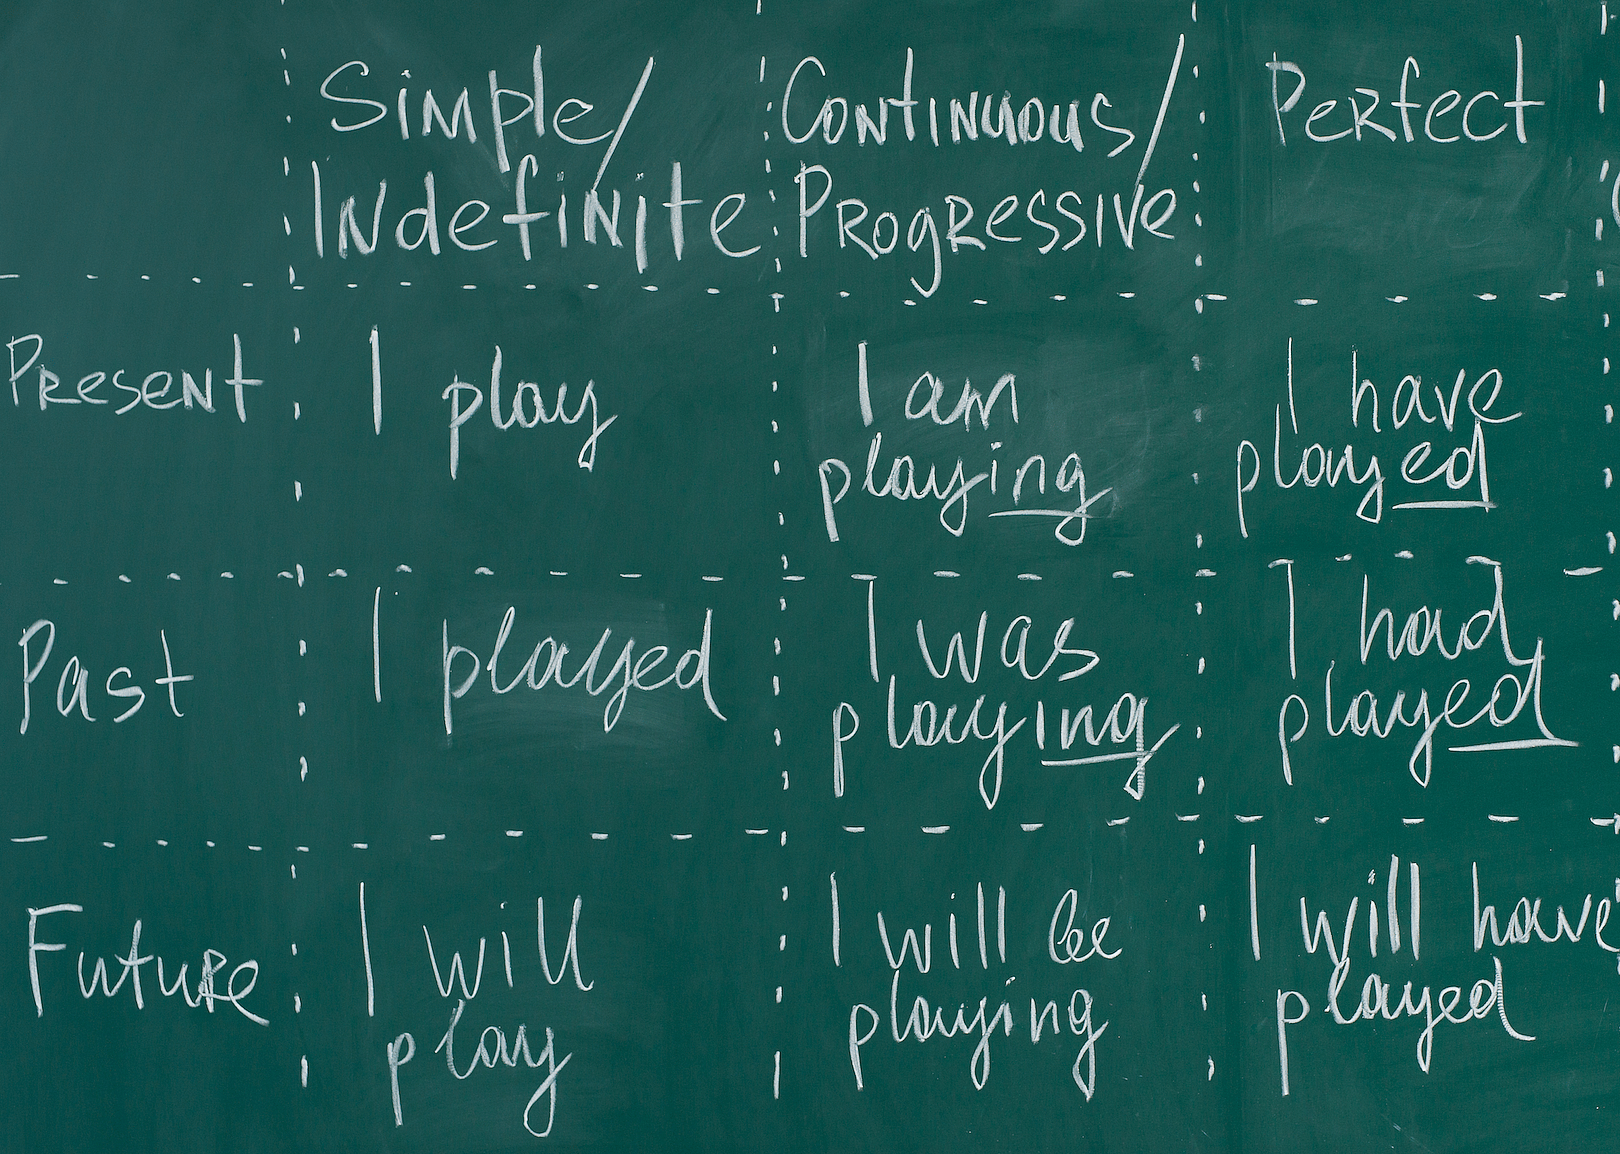 Simple/
Indefinite
Continuous/
Progressive
Perfect
Present
I play
I am
playing
I have
played
Past
I played
I was
playing
I had
played
Future
I will
play
I will be
playing
I will have
played